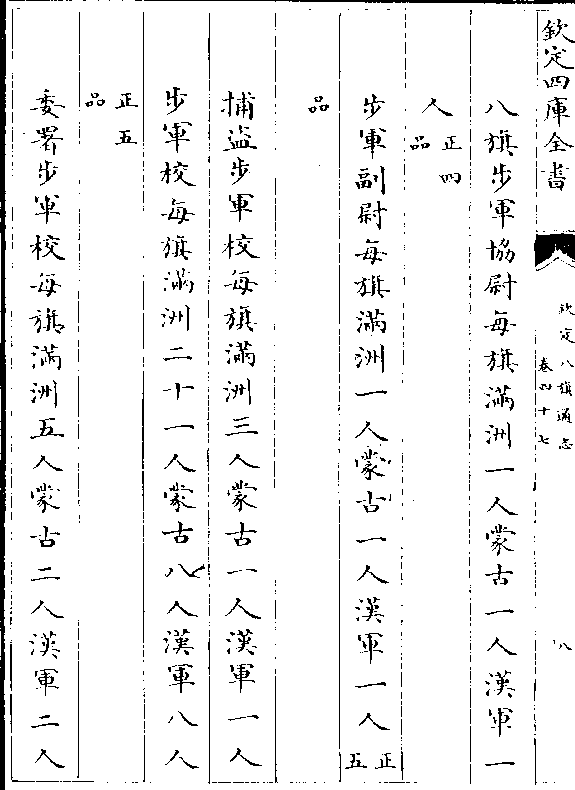 欽定四庫全書
欽定八旗通志
卷四十七
八
八旗步軍協尉每旗滿洲一人蒙古一人漢軍一
人正四
品
步軍副尉每旗滿洲一人蒙古一人漢軍一人正
五
品
捕盜步軍校每旗滿洲三人蒙古一人漢軍一人
步軍校每旗滿洲二十一人蒙古八人漢軍八人
正五
品
委署步軍校每旗滿洲五人蒙古二人漢軍二人